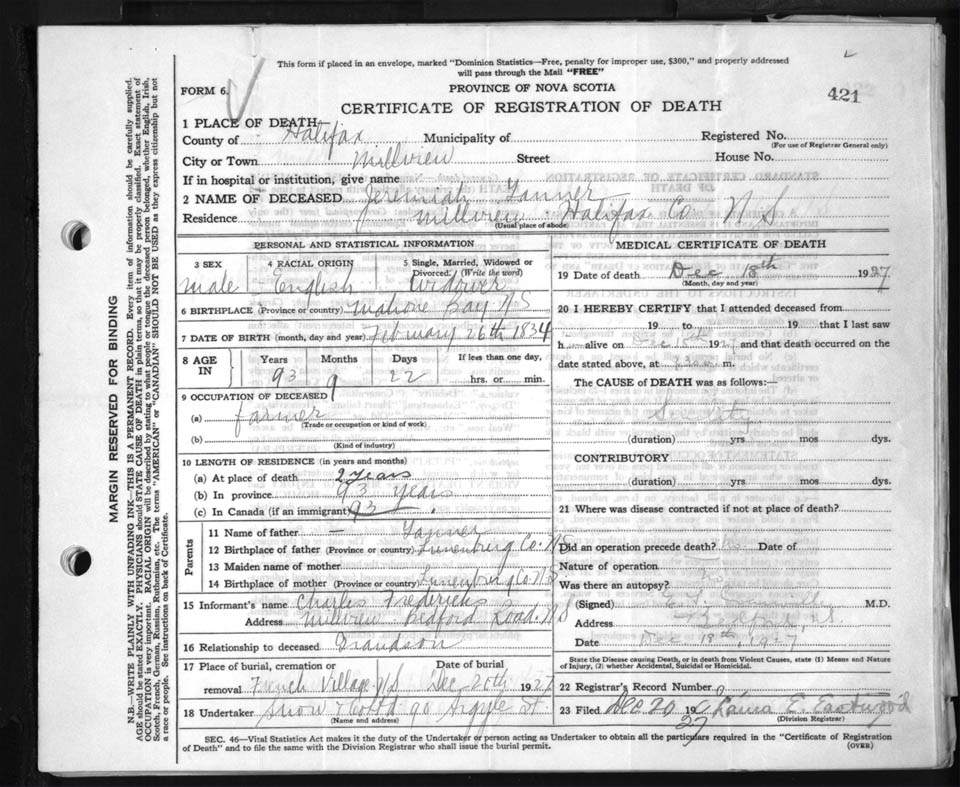 This form if placed in an envelope, marked "Dominion Statistics—Free, penalty for improper use, $300," and properly addressed
will pass through the Mail "FREE"
FORM 6.
PROVINCE OF NOVA SCOTIA
CERTIFICATE OF REGISTRATION OF DEATH
421
1 PLACE OF DEATH
County of Halifax Municipality of Registered No.
(For use of Registrar General only)
City or Town Millview Street House No.
If in hospital or institution, give name
2 NAME OF DECEASED Jeremiah Tanner
Residence Millview Halifax Co. N S
(Usual place of abode)
PERSONAL AND STATISTICAL INFORMATION
3 SEX 4 RACIAL ORIGIN 5 Single, Married, Widowed or
Divorced: (Write the word)
Male English Widower
6 BIRTHPLACE (Province or country) Mahone Bay N S
7 DATE OF BIRTH (month, day and year) February 26th 1834
8 AGE IN Years Months Days If less than one day,
93 9 22 hrs. or min.
9 OCCUPATION OF DECEASED
(a) farmer
(Trade or occupation or kind of work)
(b)
(Kind of industry)
10 LENGTH OF RESIDENCE (in years and months)
(a) At place of death 2 years
(b) In province 93 years
(c) In Canada (if an immigrant) 93
Parents
11 Name of father — Tanner
12 Birthplace of father (Province or country) Lunenburg Co. N S
13 Maiden name of mother
14 Birthplace of mother (Province or country) Lunenburg Co. N S
15 Informant's name Charles Fredericks
Address Millview Bedford Road. N S
16 Relationship to deceased Grandson
17 Place of burial, cremation or Date of burial
removal French Village N S Dec 20th 1927
18 Undertaker Snow 90 Argyle st
(Name and address)
MEDICAL CERTIFICATE OF DEATH
19 Date of death Dec 18th 1927
(Month, day and year)
20 I HEREBY CERTIFY that I attended deceased from
19 to 19 that I last saw
h alive on 192 and that death occurred on the
date stated above, at m.
The CAUSE of DEATH was as follows:—
Senility
(duration) yrs mos dys.
CONTRIBUTORY
(duration) yrs mos dys.
21 Where was disease contracted if not at place of death?
Did an operation precede death? No Date of
Nature of operation
Was there an autopsy? No
(Signed) M.D.
Address Bedford, N.S.
Date Dec 18th, 1927
State the Disease causing Death, or in death from Violent Causes, state (1) Means and Nature
of Injury, (2) whether Accidental, Suicidal or Homicidal.
22 Registrar's Record Number
23 Filed Dec 20 192 Laura E. Eastwood
27 (Division Registrar)
SEC. 46—Vital Statistics Act makes it the duty of the Undertaker or person acting as Undertaker to obtain all the particulars required in the "Certificate of Registration
of Death" and to file the same with the Division Registrar who shall issue the burial permit.
(OVER)
MARGIN RESERVED FOR BINDING
N.B.—WRITE PLAINLY WITH UNFADING INK—THIS IS A PERMANENT RECORD. Every item of information should be carefully supplied.
AGE should be stated EXACTLY. PHYSICIANS should STATE CAUSE OF DEATH in plain terms, so that it may be properly classified. Exact statement of
OCCUPATION is very important. RACIAL ORIGIN will be described by stating to what people or tongue the deceased person belonged, whether English, Irish,
Scotch, French, German, Russian, Ruthenian, etc. The terms "AMERICAN" or "CANADIAN" SHOULD NOT BE USED as they express citizenship but not
a race or people. See instructions on back of Certificate.